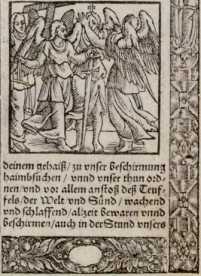 deinem gehaiß / zu vnser beschirmung
haimbsuchen / vnnd vnser thun ord-
nen / vnd vor allem anstoß deß Teuf-
fels / der Welt / vnd Sünd / wachend
vnd schlaffend / alzeit bewaren vnnd
beschirmen / auch in der Stund vnsers